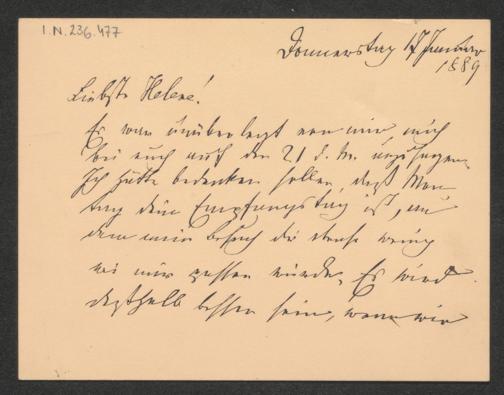 I.N. 236.477
Donnerstag 17 Januar
1889
Liebste Helene!
Es war unüberlegt von mir, mich
bei euch auf den 21 d. M. anzusagen.
Ich hätte bedenken sollen, daß Mon-
tag dein Empfangstag ist, an
dem mein Besuch dir ebenso wenig
wie mir passen würde. Es wird
deßhalb besser sein, wenn wir